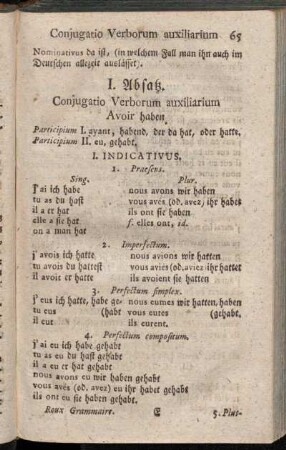 Conjugatio Verborum auxiliarium 65
Nominativus da ist, (in welchem Fall man ihn auch im
Deutschen allezeit auslässet).
I. Absatz.
Conjugatio Verborum auxiliarium
Avoir haben
Participium I. ayant, habend, der da hat, oder hatte,
Participium II. eu, gehabt,
I. INDICATIVUS.
1. Praesens.
Sing. Plur.
J'ai ich habe nous avons wir haben
tu as du hast vous avés (od. avez) ihr habet
il a er hat ils ont sie haben
elle a sie hat f. elles ont, id.
on a man hat
2. Imperfectum.
j'avois ich hatte nous avions wir hatten
tu avois du hattest vous aviés (od. aviez) ihr hattet
il avoit er hatte ils avoient sie hatten
3. Perfectum simplex.
j'eus ich hatte, habe ge- nous eumes wir hatten, haben
tu eus (habt vous eutes (gehabt,
il eut ils eurent.
4. Perfectum compositum.
j'ai eu ich habe gehabt
tu as eu du hast gehabt
il a eu er hat gehabt
nous avons eu wir haben gehabt
vous avés (od. avez) eu ihr habet gehabt
ils ont eu sie haben gehabt
Roux Grammaire. E 5. Plus-